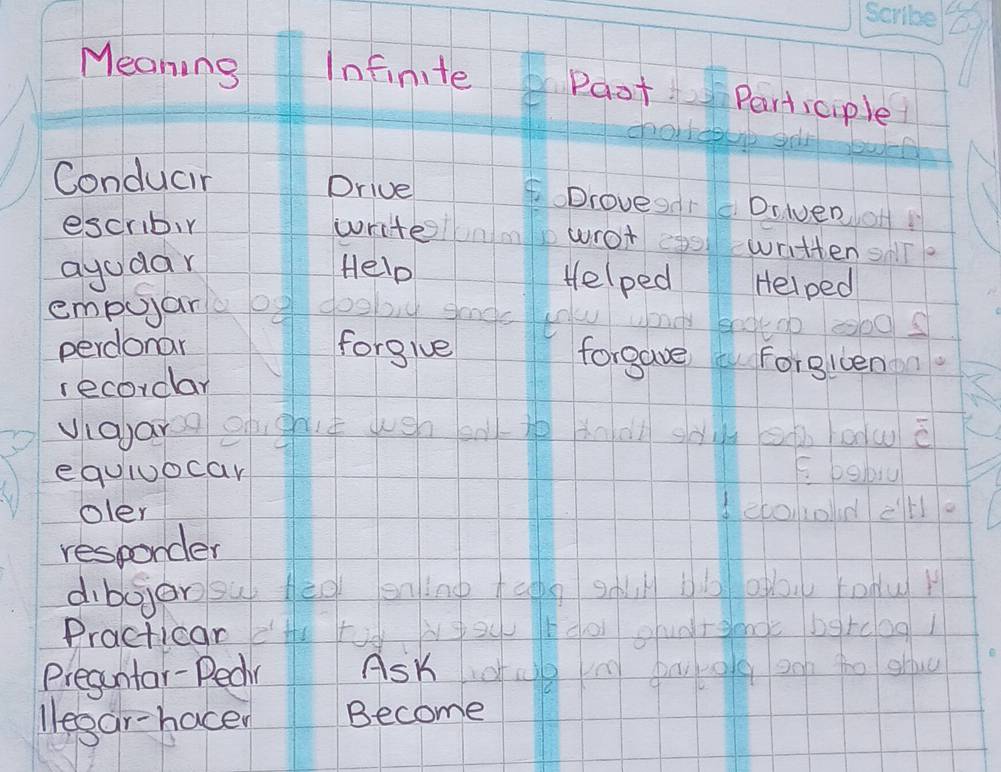 Scribe
Meaning Infinite Past Participle
Conducir Drive Drove Driven
escribir write wrot written
ayudar Help Helped Helped
empujar
perdonar forgive forgave Forgiven
recordar
viajar
equivocar
oler
responder
dibujar
Practicar
Preguntar-Pedir Ask
llegar-hacer Become